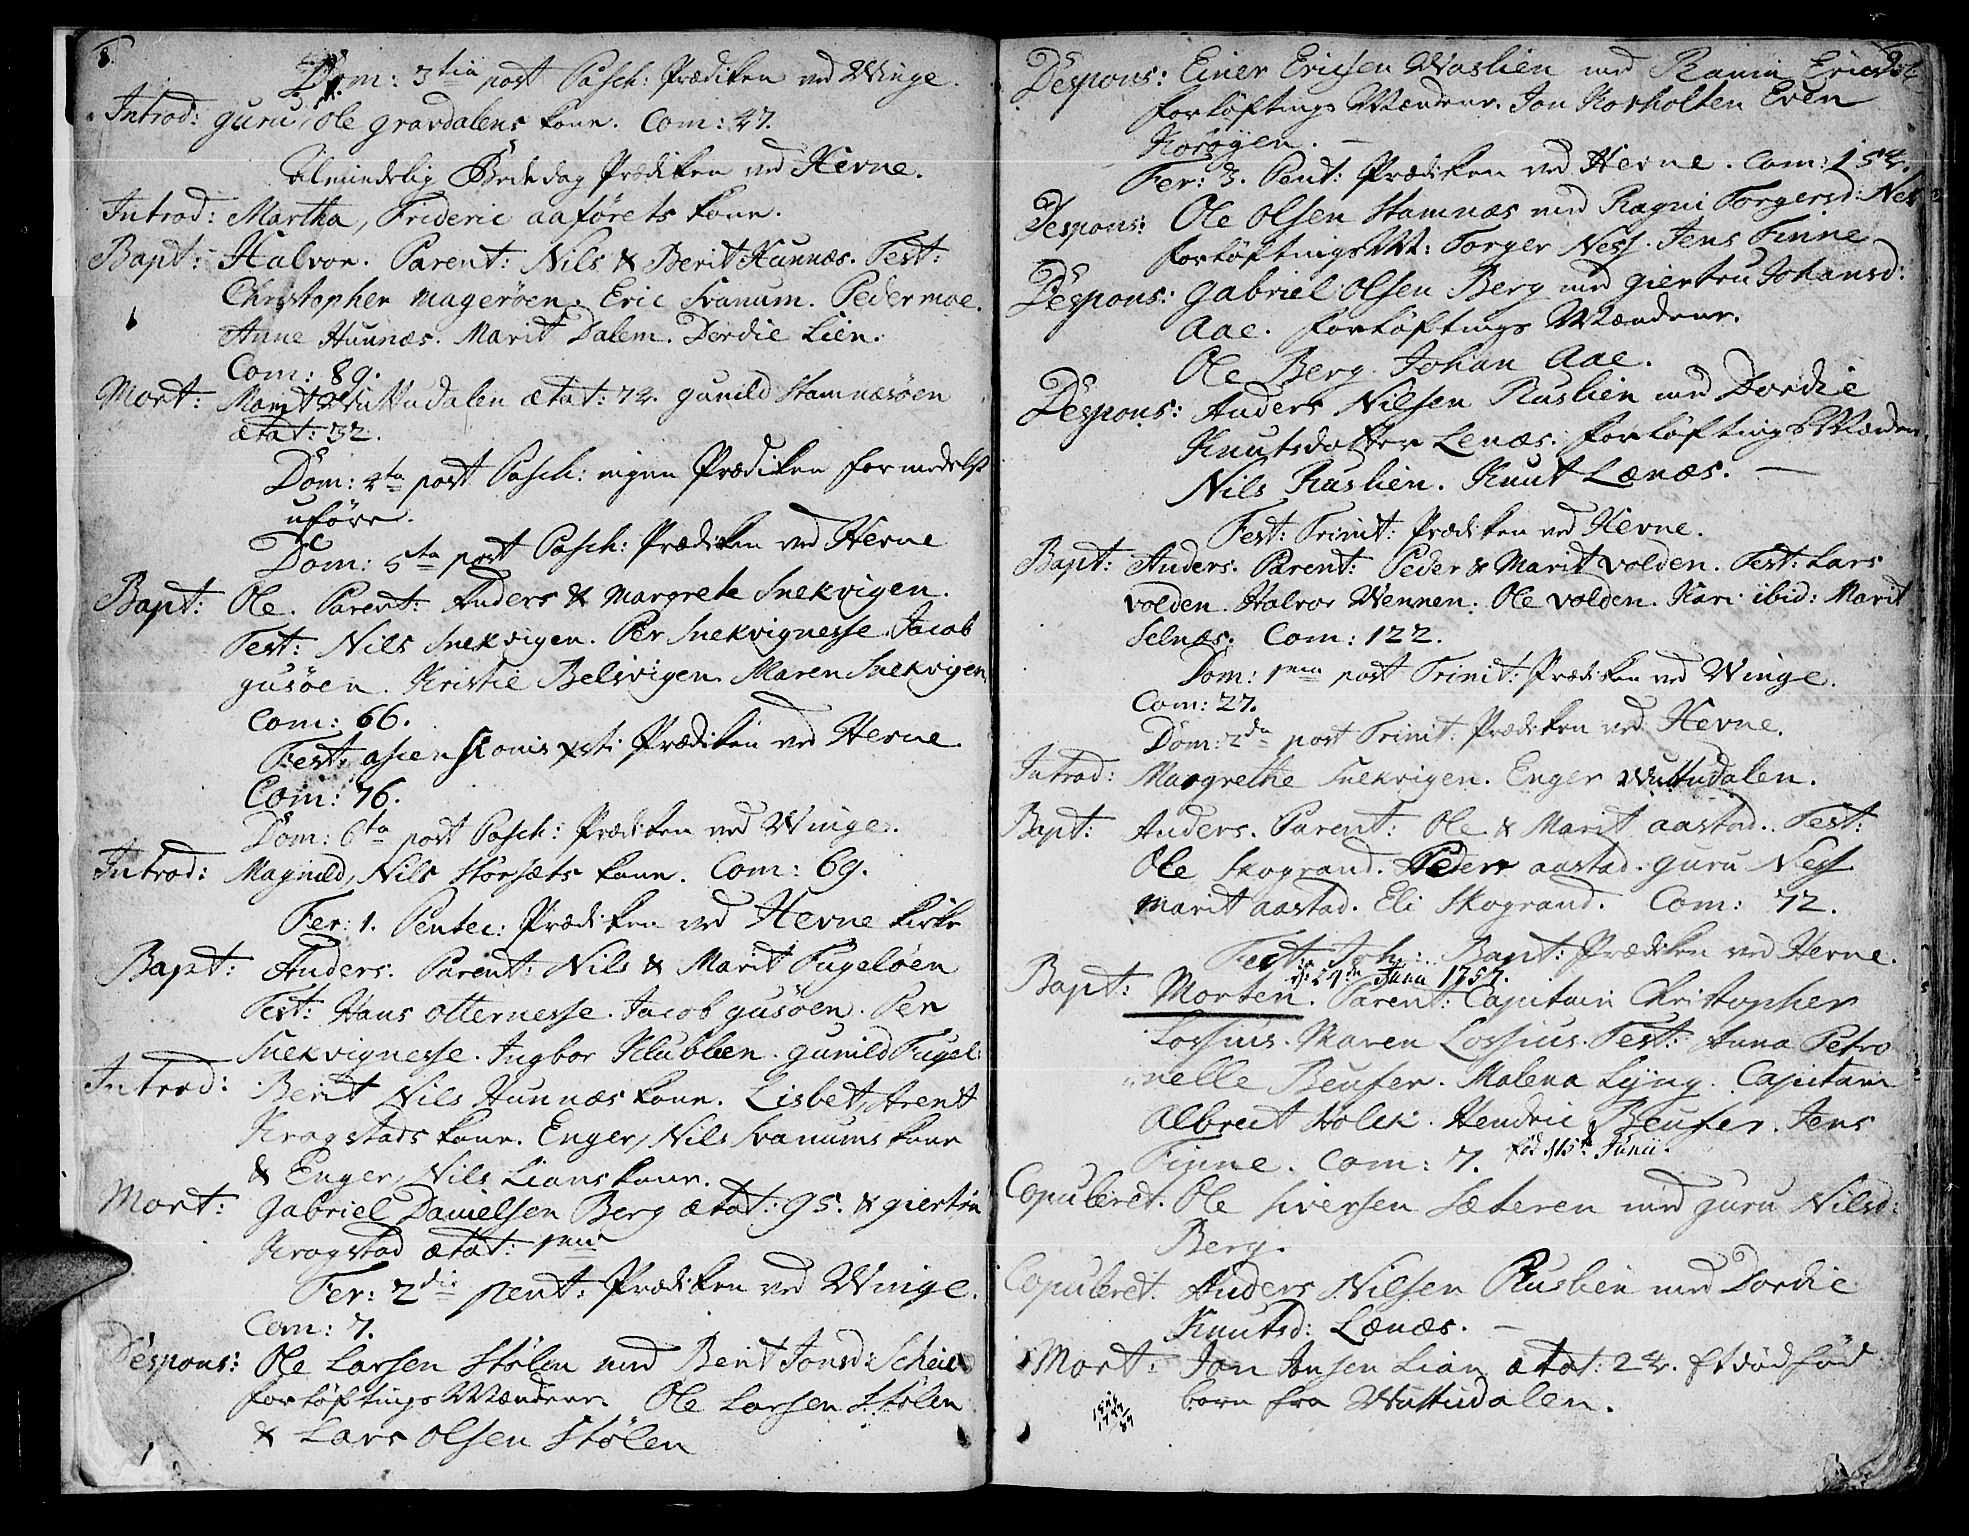 8.
Dom: 3tia post Pasch: Prædiken ved Winge.
Introd: guru, Ole gravdalens kone. Com: 47.
Almindelig Bededag Prædiken ved Hevne.
Introd: Martha, Frideric aaförets kone.
Bapt: Halvor. Parent: Nils & Berit Hunnæs. Test:
Christopher magerøen. Eric Svanum. Peder moe.
Anne Hunnæs. Marit Dalem. Dordie Lien.
Com: 89.
Mort: Marit Wuttudalen ætat: 72. gunild Stamnæsøen
ætat: 32.
Dom: 4ta post Pasch: ingen Prædiken formedelst
uföre.
Dom: 5ta post Pasch: Prædiken ved Hevne
Bapt: Ole. Parent: Anders & Margrete Snekvigen.
Test: Nils Snekvigen. Per Snekvignesse. Jacob
gusøen. Kristie Belsvigen. Maren Snekvigen
Com: 66.
Fest: ascensionis xsti Prædiken ved Hevne.
Com: 76.
Dom: 6ta post Pasch: Prædiken ved Winge.
Introd: Magnild, Nils Störsets kone. Com: 69.
Fer: 1. Pentec: Prædiken ved Hevne kirke
Bapt: Anders. Parent: Nils & Marit Fugeløen
Test: Hans Otternesse. Jacob gusøen. Per
Snekvignesse. Ingbor Klubben. gunild Fugel:
Introd: Berit Nils Hunnæs kone. Lisbet, Arent
Krogstads kone. Enger, Nils Svanums kone
& Enger, Nils Lians kone.
Mort: Gabriel Danielsen Berg ætat: 95. & giertru
Krogstad ætat: 1
Fer: 2die pent: Prædiken ved Winge.
Com: 7.
Despons: Ole Larsen Stølen med Berit Jonsd: Schei
forløftings Mændene. Ole Larsen Stølen
& Lars Olsen Stølen
Despons: Einer Ericsen Waslien med Ranni Ericsd:
forløftings Mændene. Jon Korholten Even
Korøyen. —
Fer: 3. Pent: Prædiken ved Hevne. Com: 152.
Despons: Ole Olsen Stamnæs med Ragni Torgersd: Ness
forløftings M: Torger Ness. Jens Finne
Despons: Gabriel Olsen Berg med giertru Johansd:
Aae. forløftings Mændene.
Ole Berg. Johan Aae.
Despons: Anders Nilsen Ruslien med Dordie
Knutsdotter Lenæs. forløftings Mænden
Nils Ruslien. Knut Lænæs. —
Fest: Trinit: Prædiken ved Hevne.
Bapt: Anders. Parent: Peder & Marit volden. Test: Lars
volden. Halvor Wennen. Ole volden. Kari ibid: Marit
Selnæs. Com: 122.
Dom: 1ma post Trinit: Prædiken ved Winge.
Com: 27.
Dom: 2da post Trinit: Prædiken ved Hevne.
Introd: Margrethe Snekvigen. Enger Wuttudalen.
Bapt: Anders. Parent: Ole & Marit aastad. Test:
Ole Skogrand. Peder aastad. guru Ness
marit aastad. Eli Skogrand. Com: 72.
Fest: Joh: Bapt: Prædiken ved Hevne.
d: 24de Junii 1757.
Bapt: Morten. Parent: Capitain Christopher
Lossius. Maren Lossius. Test: Anna Petro
nelle Beuser. Malena Lyng. Capitain
Albrect Holck. Hendric Beuser. Jens
Finne. Com: 7. fød d 15de Junii.
Copuleret: Ole Iversen Sæteren med guru Nilsd:
Berg.
Copuleret: Anders Nilsen Ruslien med Dordie
Knutsd: Lænæs. —
Mort: Jon Jonsen Lian ætat: 22. Et dødfød
barn fra Wuttudalen.